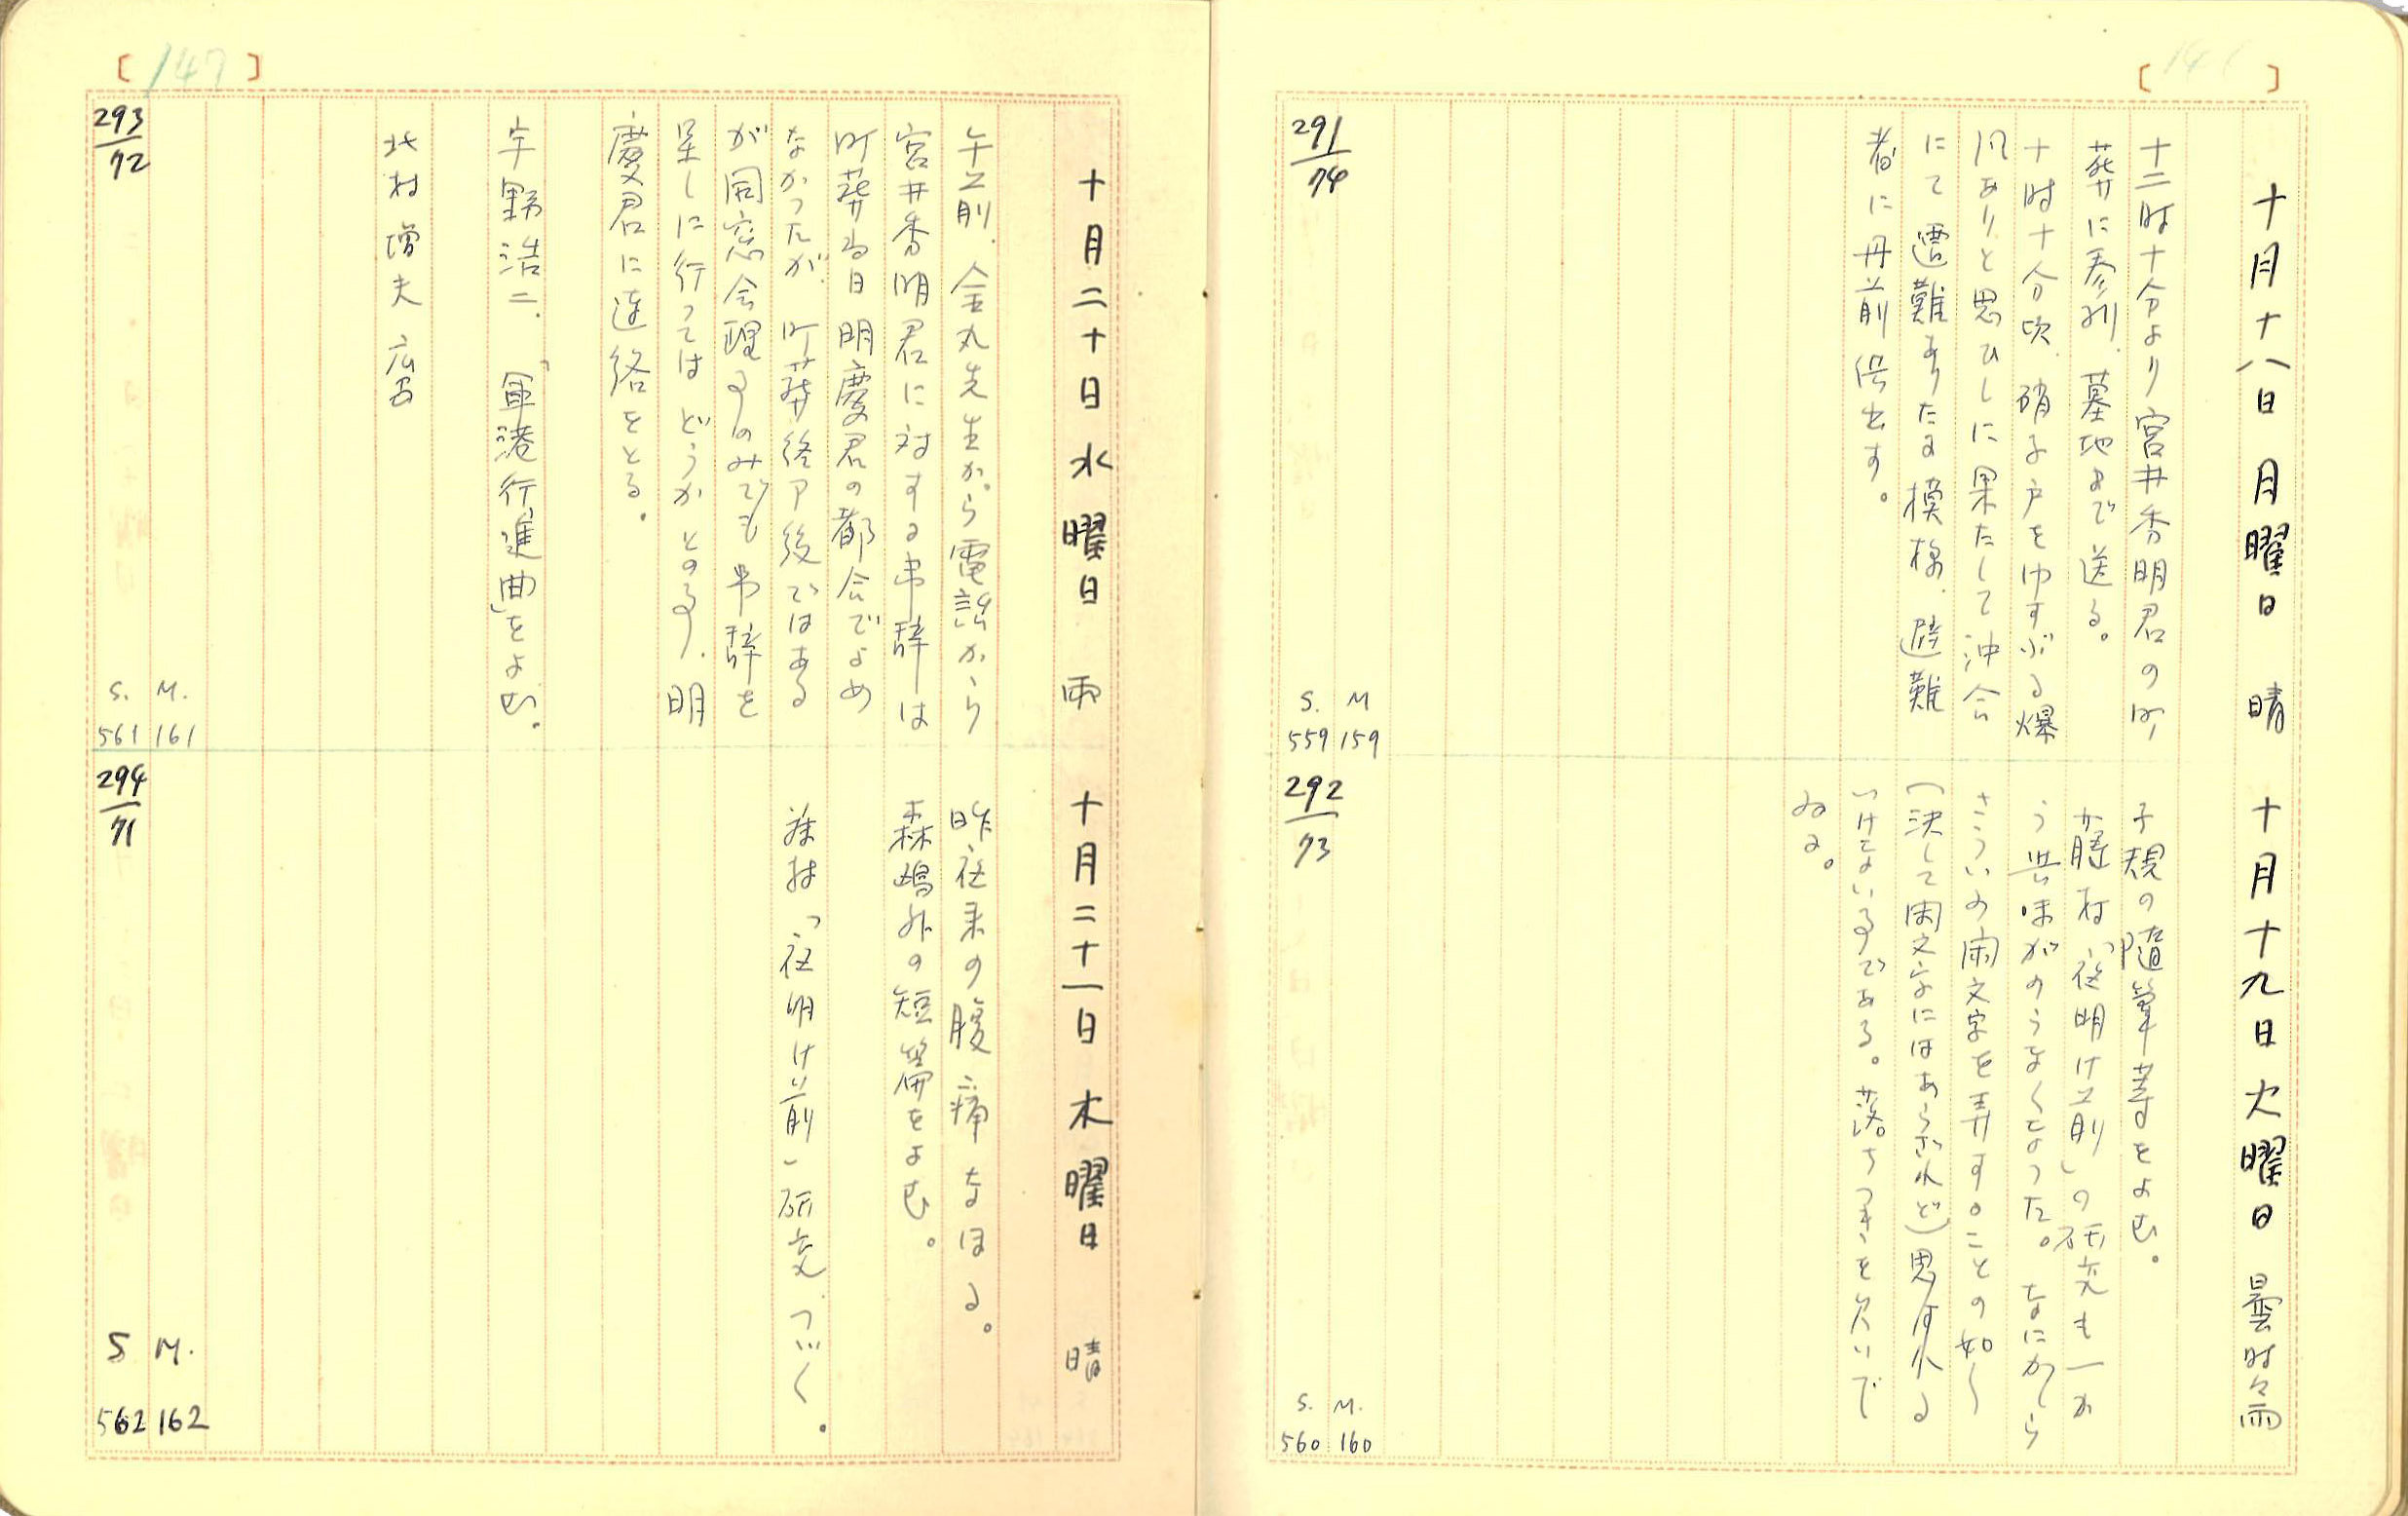 十月十八日 月曜日 晴
十二時十分より宮井秀明君の町
葬に参列．墓地まで送る。
十時十分頃．硝子戸をゆすぶる爆
風ありと思ひしに果たして沖合
にて遭難ありたる模様．避難
者に丹前供出す。
291/74
S. M
559 159
十月十九日 火曜日 曇時々雨
子規の隨筆等をよむ。
藤村「夜明け前」の研究も一か
う興味がのうなくなった。なにかしら
さういふ閑文字を弄することの如く
(決して閑文字にはあらざれど)思はれる
いけないることである。落ちつきを欠いで
ゐる。
292/73
S. M.
560 160
[147]
十月二十日 水曜日 雨
午前．金丸先生から電話から
宮井秀明君に対する弔辞は
町葬当日明慶君の都合でよめ
なかったが．町葬終了後ではある
が同窓会のみでも弔辞を
呈しに行ってはどうかとのこと．明
慶君に連絡をとる．
宇野浩二．「軍港行進曲」をよむ．
北村増夫 応召
293/72
S. M.
561 161
十月二十一日 木曜日 晴
昨夜来の腹痛なほる。
森鴎外の短篇をよむ。
藤村「夜明け前」研究つづく．
294/71
S M.
562 162